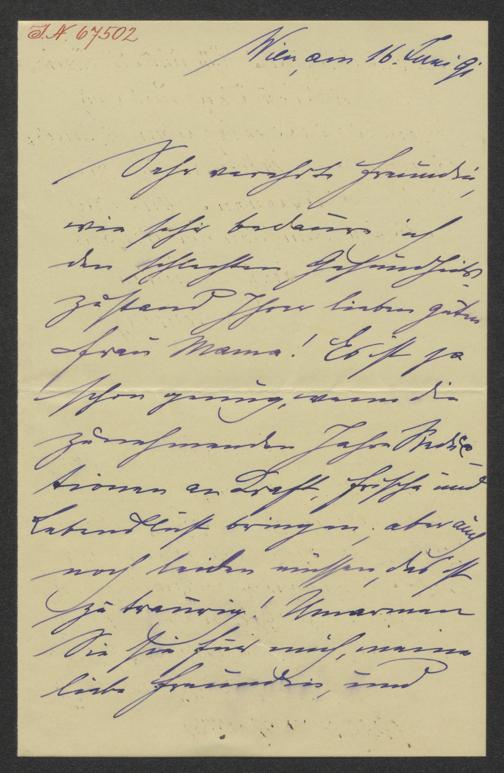 I.N. 67502
Wien, am 16. Juni 91
Sehr verehrte Freundin,
wie sehr bedaure ich
den schlechten Gesundheits-
zustand Ihrer lieben guten
Frau Mama! Es ist ja
schon genug, wenn die
zunehmenden Jahre Reduk-
tionen an Kraft, Frische und
Lebenslust bringen, aber auch
noch leiden müssen, das ist
zu traurig! Umarmen
Sie sie für mich, meine
liebe Freundin, und